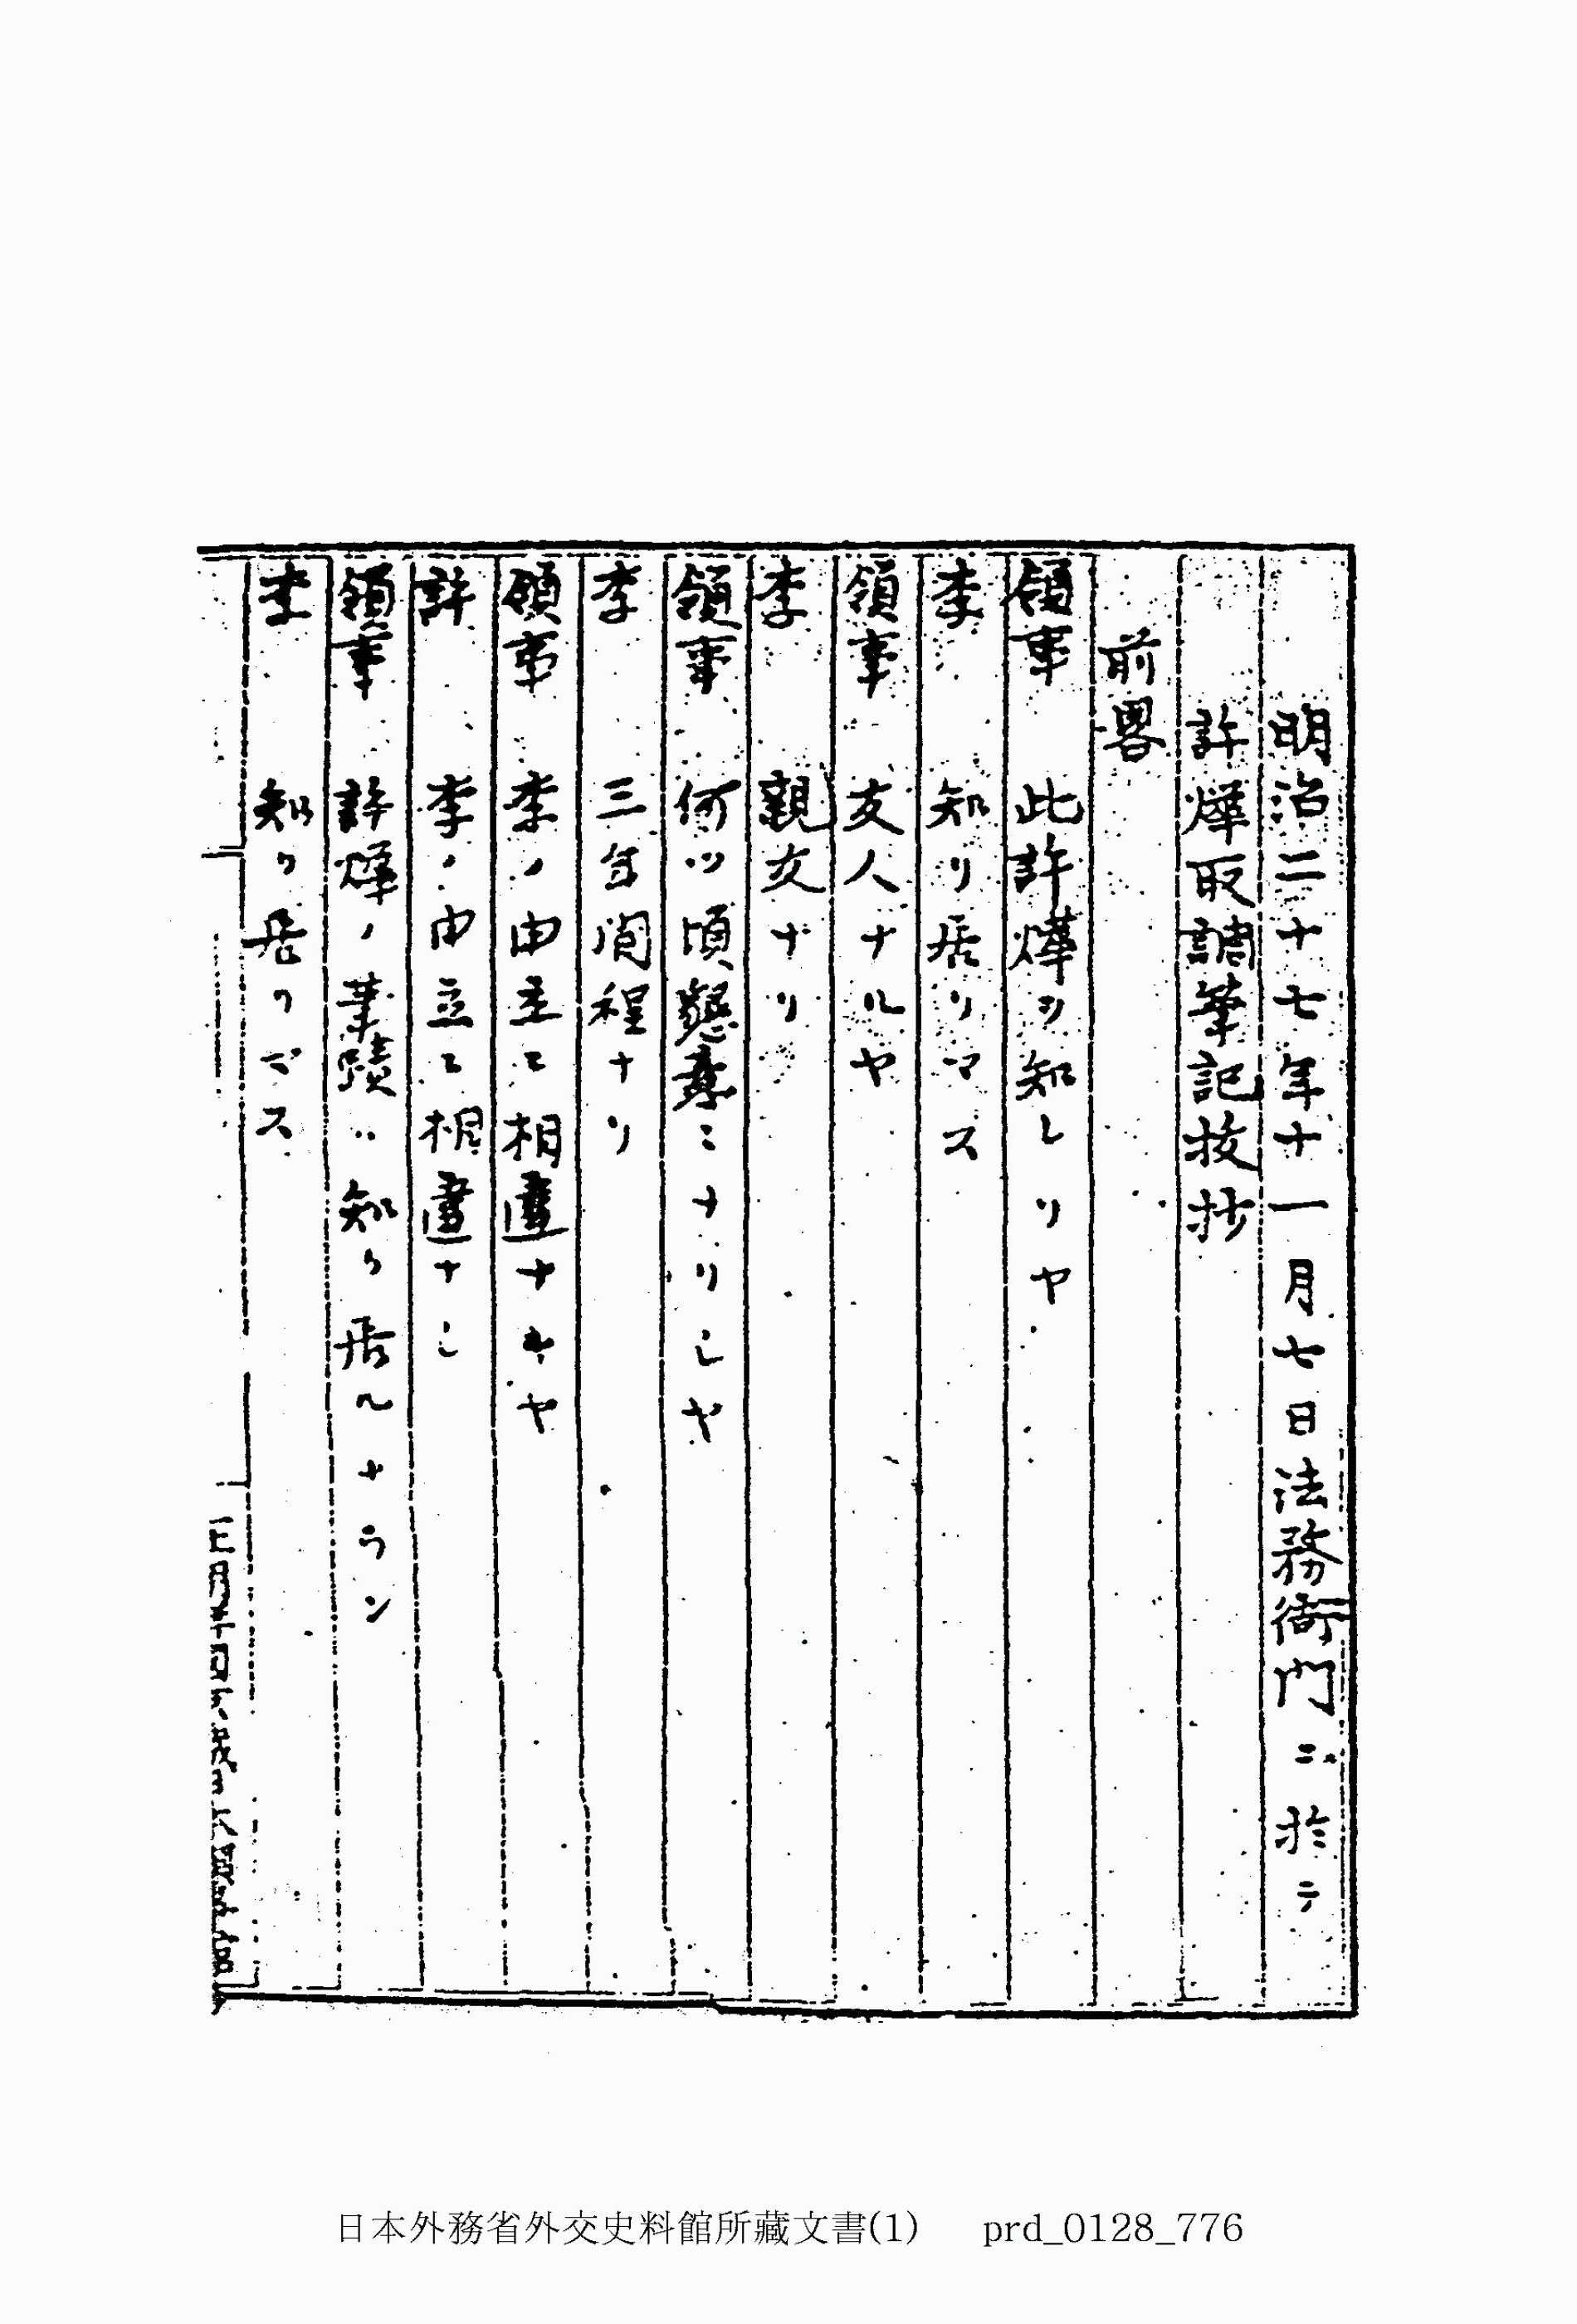 明治二十七年十一月七日法務衙門ニ於テ
許燁取調筆記抜抄
前畧
領事 此許燁ヲ知レリヤ
李 知リ居リマス
領事 友人ナルヤ
李 親友ナリ
領事 何ツ頃懇意ニナリシヤ
李 三年間程ナリ
領事 李ノ申立ニ相違ナキヤ
許 李ノ申立ニ相違ナシ
領事 許燁ノ筆蹟ハ知ラ居ルナラン
李 知リ居リマス
日本外務省外交史料館所藏文書(1) prd_0128_776